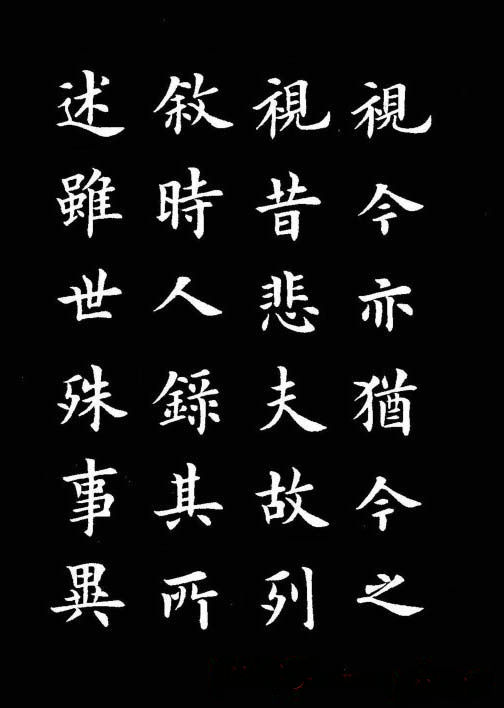 視今亦猶今之
視昔悲夫故列
敘時人錄其所
述雖世殊事異